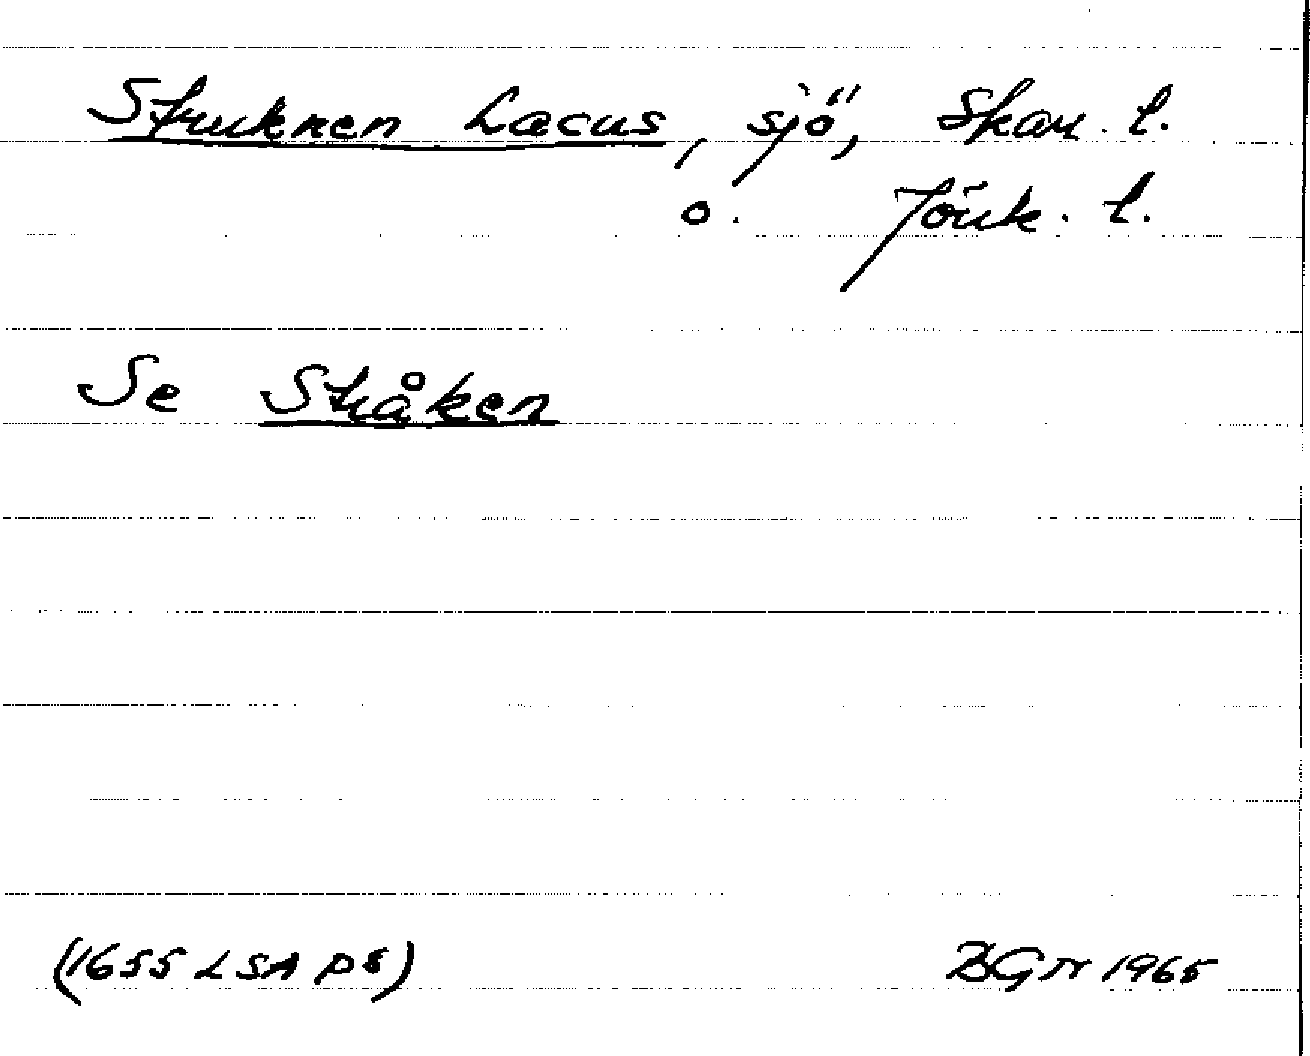 Struknen Lacus, sjö, Skar. l.
o. Jönk. l.
Se Stråken
(1655 LSA p8)
BGN 1965